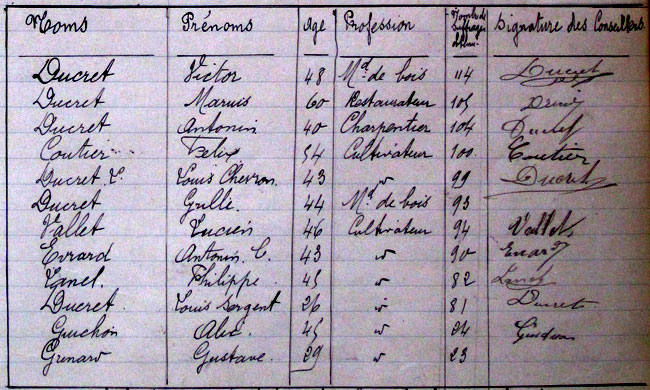 Noms Prénoms Age Profession Nombre de suffrages obtenus Signature des Conseillers
Ducret Victor 48 Md de bois 114 Ducret
Ducret Marius 60 Restaurateur 105
Ducret Antonin 40 Charpentier 104 Ducret
Coutier Félix 54 Cultivateur 100 Coutier
Ducret V. Louis Chevron 43 " 99 Ducret
Ducret 44 Md de bois 93
Vallet Lucien 46 Cultivateur 94 Vallet
Evrard Antonin C. 43 " 90 Evrard
Philippe 45 " 82
Ducret Louis Sergent 26 " 81 Ducret
Guichon 45 " 24
Grenard Gustave 29 " 23